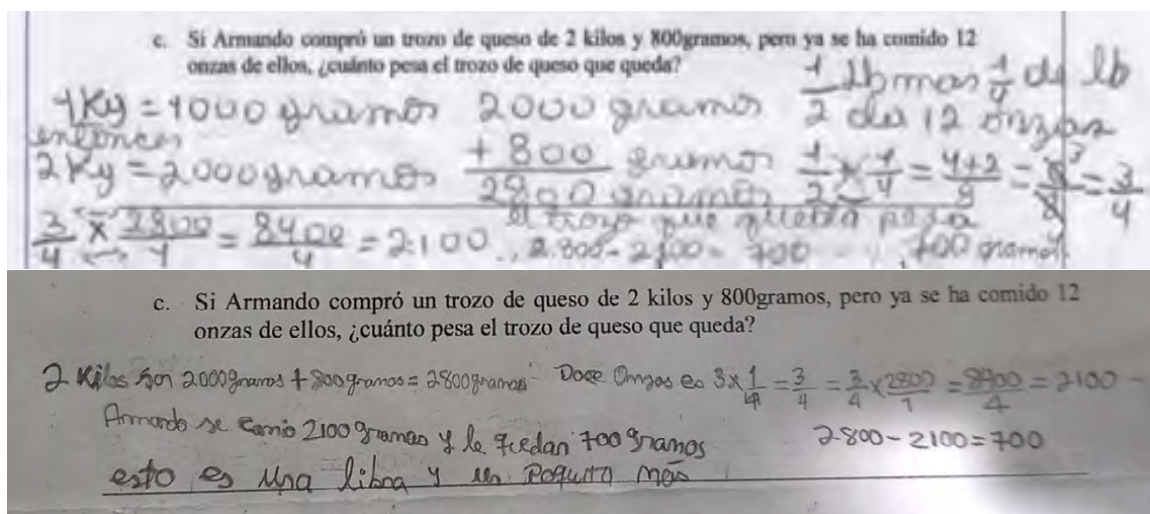 c. Si Armando compró un trozo de queso de 2 kilos y 800gramos, pero ya se ha comido 12
onzas de ellos, ¿cuánto pesa el trozo de queso que queda?
1/2 lb mas 1/4 de lb
da 12 onzas
1Kg = 1000 gramos
entonces
2Kg = 2000gramos
2000 gramos
+ 800 gramos
2800 gramos
1/2 x 1/4 = 4+2/8 = 6/8 = 3/4
3/4 x 2800/1 = 8400/4 = 2.100 2.800 - 2100 = 700
el trozo que queda pesa
700 gramos
c. Si Armando compró un trozo de queso de 2 kilos y 800gramos, pero ya se ha comido 12
onzas de ellos, ¿cuánto pesa el trozo de queso que queda?
2 Kilos son 2000gramos + 800gramos = 2800gramos Doce Onzas es 3x1/4 = 3/4 = 3/4 x 2800/1 = 8400/4 = 2100 -
Armando se comio 2100 gramos y le quedan 700 gramos 2.800 - 2100 = 700
esto es una libra y un Poquito más